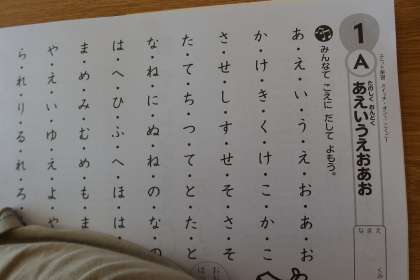 1
A
たのしく おんどく
あえいうえおあお
なまえ
みんなで こえに だして よもう。
あ・え・い・う・え・お・あ・お
か・け・き・く・け・こ・か・こ
さ・せ・し・す・せ・そ・さ・そ
た・て・ち・つ・て・と・た・と
な・ね・に・ぬ・ね・の・な・の
は・へ・ひ・ふ・へ・ほ・は・
ま・め・み・む・め・も・ま
や・え・い・ゆ・え・よ・や
ら・れ・り・る・れ・ろ